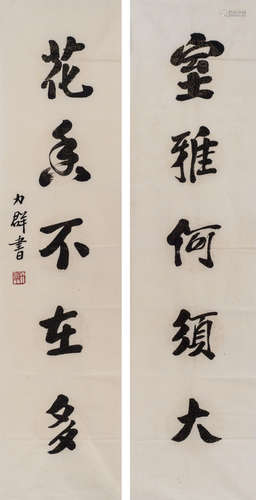 室雅何須大
花香不在多
力群書